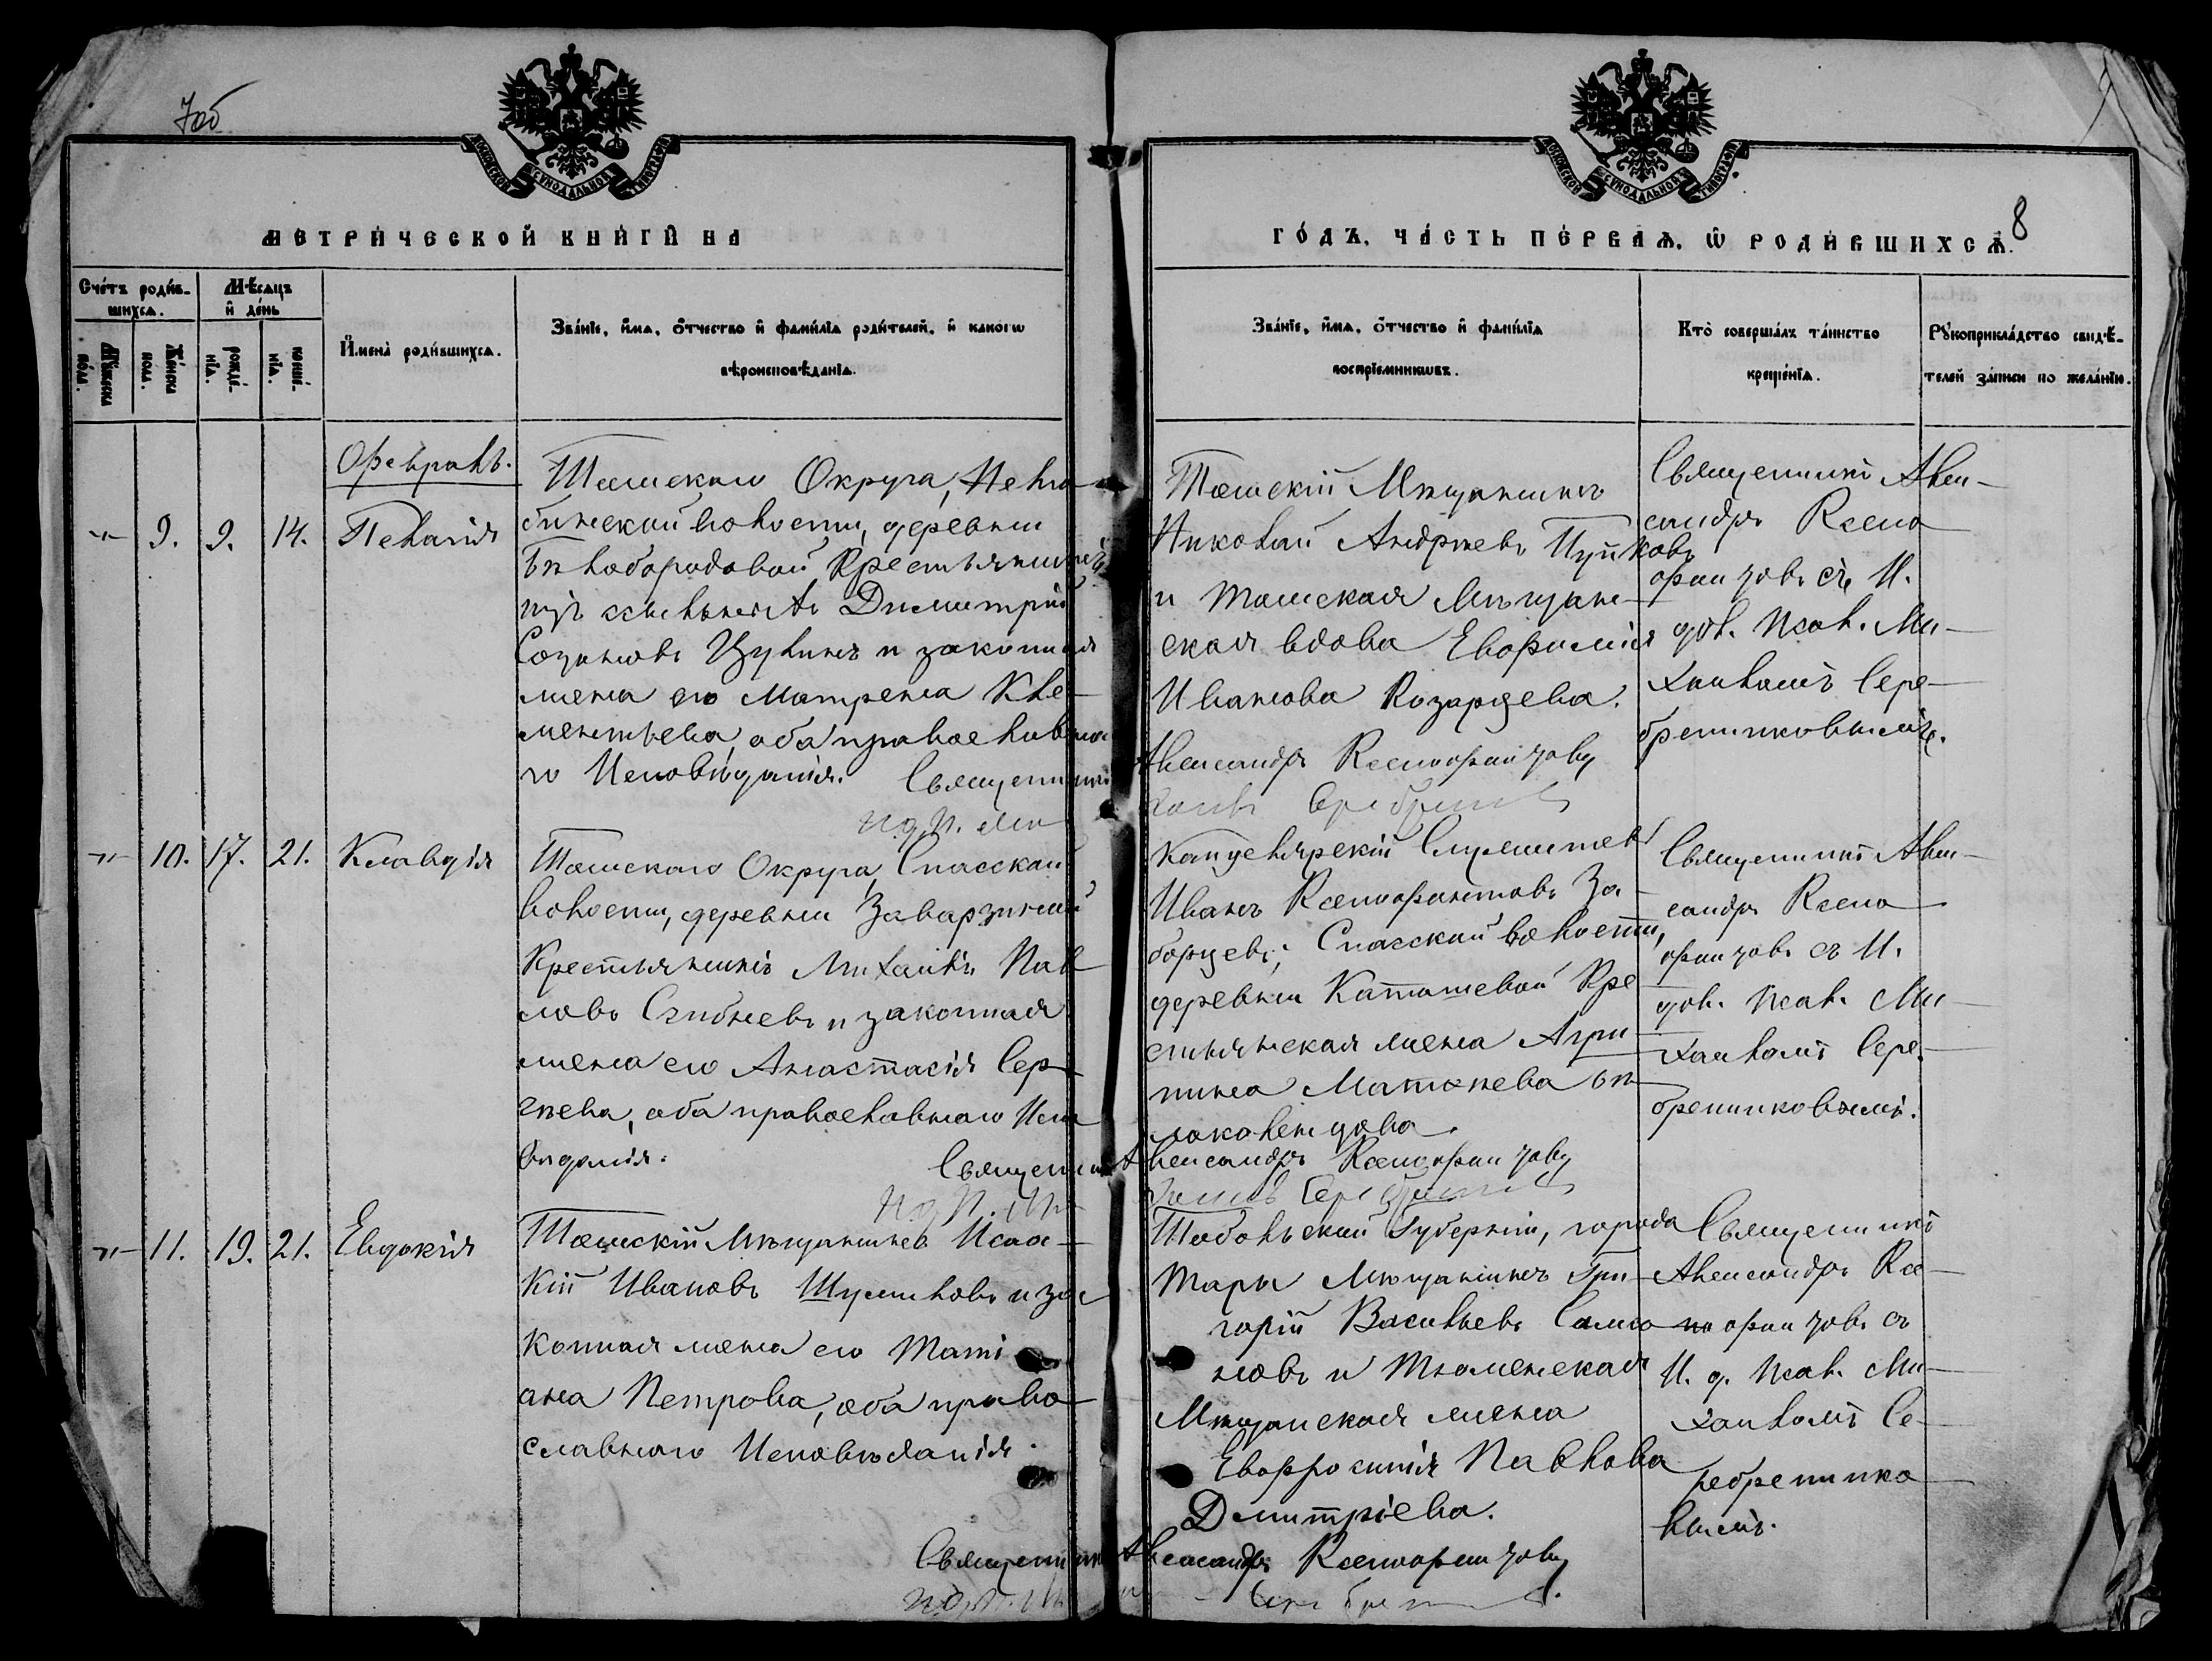 7об
МЕТРИ́ЧЕСКОЙ КНИ́ГИ НА
Сче́тъ роди́в-
шихся.
Мѣ́сяцъ
и де́нь
Му́жеска
по́ла.
Же́нска
пола.
рожде́-
нїѧ.
креще́-
нїѧ.
Имена̀ роди́вшихсѧ.
Зва́нїе, и́мѧ, о́тчество и фами́лїѧ роди́телей, и како́гѡ
вѣроисповѣ́данїѧ.
Февраль.
-"- 9. 9. 14. Пелагія
Томскаго Округа, Нелю-
бинской волости, деревни
Бѣлобородовой Крестьянинъ
изъ ссыльныхъ Димитрій
Созоновъ и законная
жена его Матрена Кле-
ментьева, оба православна-
го Исповѣданія.
Священникъ Александръ Ксенофонтовъ
-"- 10. 17. 21. Клавдія
Томскаго Округа, Спасской
волости, деревни Заварзиной
Крестьянинъ Михаилъ Пав-
ловъ и законная
жена его Анастасія Сер-
гѣева, оба православнаго Испо-
вѣданія.
Священникъ Александръ Ксенофонтовъ
-"- 11. 19. 21. Евдокія
Томскій Мѣщанинъ Исаа-
кій Ивановъ Шумиловъ и за-
конная жена его Тати-
ана Петрова, оба право-
славнаго Исповѣданія.
Священникъ Александръ Ксенофонтовъ
8
ГО́ДЪ, ЧА́СТЬ ПЕ́РВАѦ, Ѿ РОДИ́ВШИХСѦ.
Зва́нїе, и́мѧ, о́тчество и фами́лїѧ
воспрїе́мниковъ.
Кто̀ соверша́лъ та́инство
креще́нїѧ.
Рꙋкоприкла́дство свидѣ́-
телей за́писи по жела́нїю.
Томскій Мѣщанинъ
Николай Андреевъ
и Томская Мѣщан-
ская вдова Евфимія
Иванова Казарцева.
Священникъ Алек-
сандръ Ксено-
фонтовъ съ И.
дол. Псал. Ми-
хаиломъ Сере-
бренниковымъ.
Канцелярскій Служитель
Иванъ Ксенофонтовъ За-
борцевъ; Спасской волости,
деревни Крe-
стьянская жена Агри-
пина Матвѣева
Священникъ Алек-
сандръ Ксено-
фонтовъ съ И.
дол. Псал. Ми-
хаиломъ Сере-
бренниковымъ.
Тобольской Губерніи, города
Тары Мѣщанинъ Гри-
горій Васильевъ Само-
новъ и Тюменская
Мѣщанская жена
Евфросинія Павлова
Дмитріева.
Священникъ
Александръ Ксе-
нофонтовъ съ
И. д. Псал. Ми-
хаиломъ Се-
ребреннико-
вымъ.